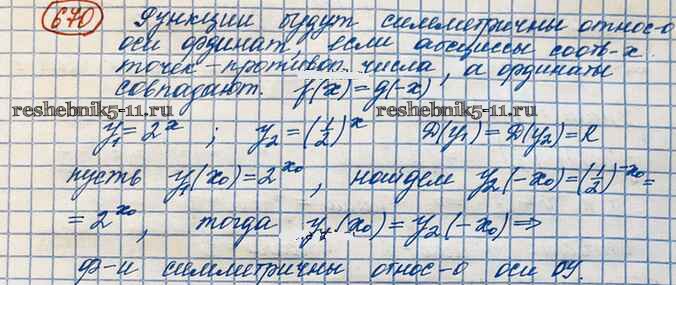 670 Функции будут симметричны относ-о
оси ординат, если абсциссы соотв-х
точек - противоп. числа, а ординаты
совпадают. f(x) = g(-x)
reshebnik5-11.ru reshebnik5-11.ru
y₁ = 2ˣ ; y₂ = (1/2)ˣ D(y₁) = D(y₂) = R
пусть y₁(x₀) = 2ˣ⁰, найдем y₂(-x₀) = (1/2)⁻ˣ⁰ =
= 2ˣ⁰, тогда y₁(x₀) = y₂(-x₀) ⇒
ф-и симметричны относ-о оси OY.